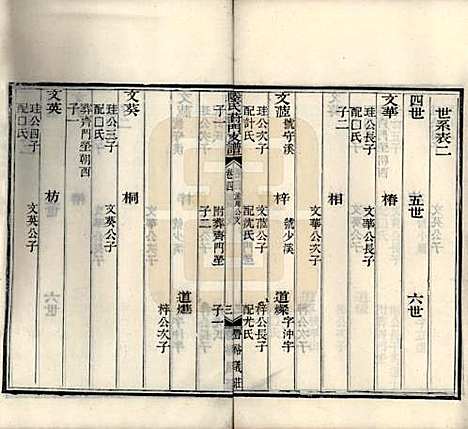 世系表二
四世 五世 六世
文華
珪公長子
配口氏
子二
椿
文華公長子
相
文華公次子
文蓝
號守溪
珪公次子
配許氏
子一
梓
號少溪
文蓝公子
配沈氏
附葬齊門塋
子二
道燦
字沖宇
梓公長子
配尤氏
子一
卷四
三
豐裕義莊
道燃
梓公次子
文葵
珪公三子
配口氏
葬齊門塋朝西
子一
桐
文葵公子
文英
珪公四子
配口氏
枋
文英公子
六世